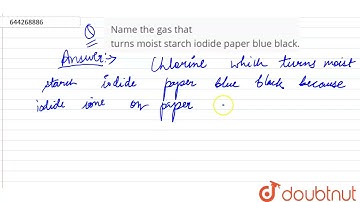 644268886
Q Name the gas that
turns moist starch iodide paper blue black.
Answer:→ Chlorine which turns moist
starch iodide paper blue black because
iodide ions on paper
doubtnut